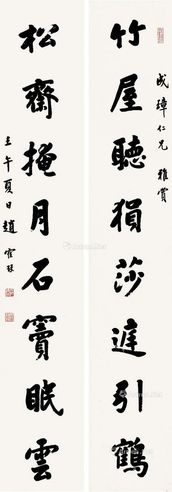 成璋仁兄 雅賞
竹屋聽猿莎引鶴
松齋掩月石竇眠雲
壬午夏日 趙寉琴